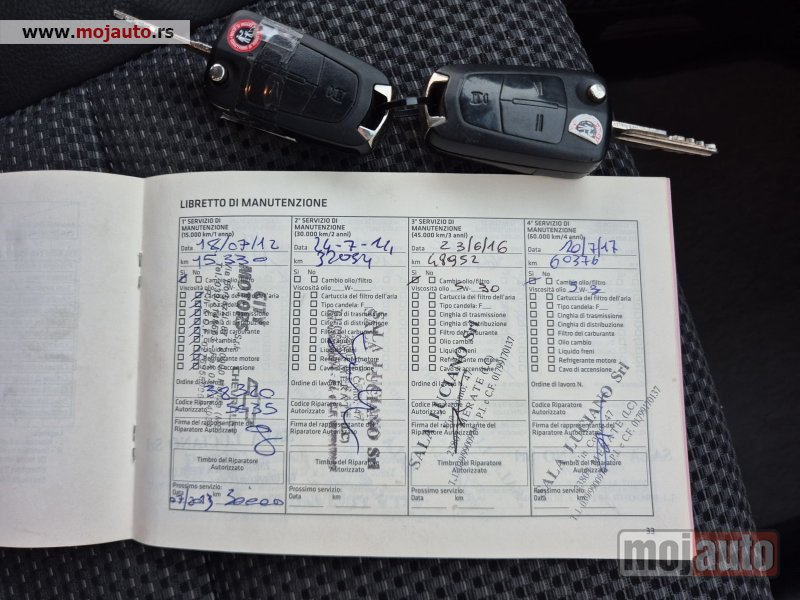 www.mojauto.rs
LIBRETTO DI MANUTENZIONE
1° SERVIZIO DI MANUTENZIONE (15.000 km/1 anno)
Data 18/07/12
km 15330
Sì No
Cambio olio/filtro
Viscosità olio W-
Cartuccia del filtro dell'aria
Tipo candela: F
Cinghia di trasmissione
Cinghia di distribuzione
Filtro del carburante
Olio cambio
Liquido freni
Refrigerante motore
Cavo di accensione
Ordine di lavoro
Codice Riparatore Autorizzato
Firma del rappresentante del Riparatore Autorizzato
Timbro del Riparatore Autorizzato
Prossimo servizio:
Data 07/2013 km 30000
2° SERVIZIO DI MANUTENZIONE (30.000 km/2 anni)
Data 24-7-14
km 32034
Sì No
Cambio olio/filtro
Viscosità olio W-
Cartuccia del filtro dell'aria
Tipo candela: F
Cinghia di trasmissione
Cinghia di distribuzione
Filtro del carburante
Olio cambio
Liquido freni
Refrigerante motore
Cavo di accensione
Ordine di lavoro
Codice Riparatore Autorizzato
Firma del rappresentante del Riparatore Autorizzato
SALA LUCIANO Srl
Timbro del Riparatore Autorizzato
Prossimo servizio:
Data km
3° SERVIZIO DI MANUTENZIONE (45.000 km/3 anni)
Data 23/6/16
km 48952
Sì No
Cambio olio/filtro
Viscosità olio 5W-30
Cartuccia del filtro dell'aria
Tipo candela: F
Cinghia di trasmissione
Cinghia di distribuzione
Filtro del carburante
Olio cambio
Liquido freni
Refrigerante motore
Cavo di accensione
Ordine di lavoro
Codice Riparatore Autorizzato
Firma del rappresentante del Riparatore Autorizzato
SALA LUCIANO Srl
Timbro del Riparatore Autorizzato
Prossimo servizio:
Data km
4° SERVIZIO DI MANUTENZIONE (60.000 km/4 anni)
Data 20/7/17
km 60376
Sì No
Cambio olio/filtro
Viscosità olio W-
Cartuccia del filtro dell'aria
Tipo candela: F
Cinghia di trasmissione
Cinghia di distribuzione
Filtro del carburante
Olio cambio
Liquido freni
Refrigerante motore
Cavo di accensione
Ordine di lavoro N.
Codice Riparatore Autorizzato
Firma del rappresentante del Riparatore Autorizzato
SALA LUCIANO Srl
Timbro del Riparatore Autorizzato
Prossimo servizio:
Data km
33
mojauto